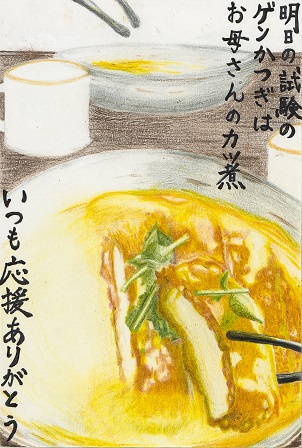 明日の試験の
ゲンかつぎは
お母さんのカツ煮
いつも応援ありがとう